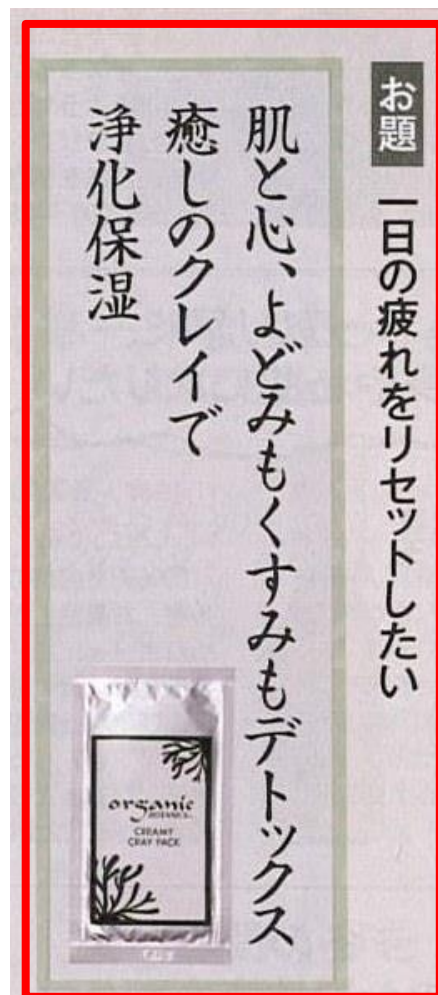 お題
一日の疲れをリセットしたい
肌と心、よどみもくすみもデトックス
癒しのクレイで
浄化保湿
organic
BOTANICS
CREAMY
CRAY PACK